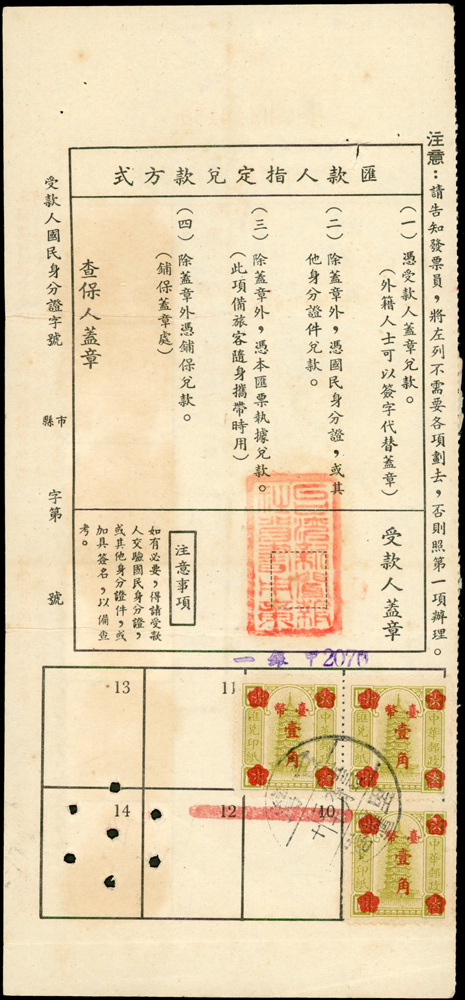 注意：請告知發票員，將左列不需要各項劃去，否則照第一項辦理。
匯款人指定兌款方式
（一）憑受款人蓋章兌款。
（外籍人士可以簽字代替蓋章）
（二）除蓋章外，憑國民身分證，或其
他身分證件兌款。
（三）除蓋章外，憑本匯票執據兌款。
（此項備旅客隨身攜帶時用）
（四）除蓋章外憑鋪保兌款。
（鋪保蓋章處）
查保人蓋章
受款人蓋章
注意事項
如有必要，得請受款
人交驗國民身分證，
或其他身分證件，或
加具簽名，以備查
考。
受款人國民身分證字號
市
縣
字第
號
13
11
14
12
10
臺幣
壹角
中華郵政
匯兌印紙
臺幣
壹角
中華郵政
匯兌印紙
臺幣
壹角
中華郵政
匯兌印紙